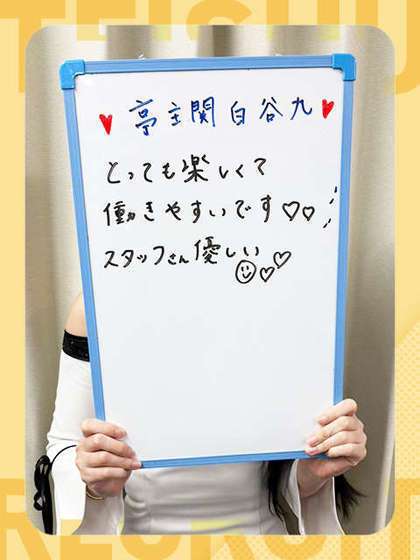 TEISHU
♥亭主関白谷九♥
とっても楽しくて
働きやすいです♡♡
スタッフさん優しい
☺♡♡
RECRUIT